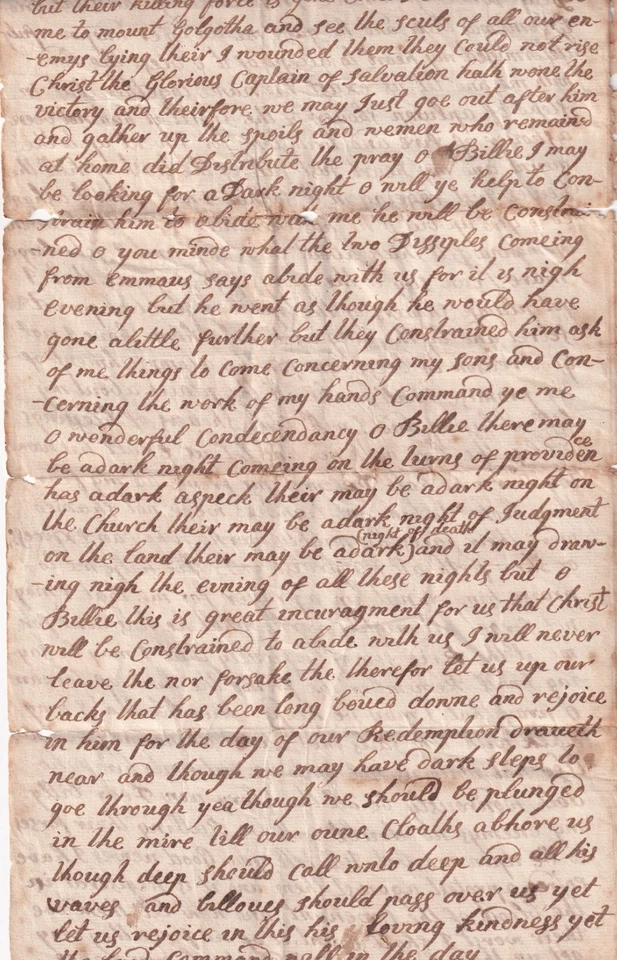 but their killing force is gone
me to mount Golgotha and see the sculs of all our en-
-emys lying their I wounded them they Could not rise
Christ the Glorious Captain of salvation hath wone the
victory and theirfore we may Just goe out after him
and gather up the spoils and wemen who remaind
at home did Distribute the pray o Billie I may
be looking for a Dark night o will ye help to Con-
-strain him to abide with me he will be Constrai-
-ned o you minde what the two Dissiples Comeing
from emmaus says abide with us for it is nigh
evening but he went as though he would have
gone alittle further but they Constrained him ask
of me things to Come Concerning my sons and Con-
-cerning the work of my hands Command ye me
o wonderful Condecendancy o Billie there may
be adark night Comeing on the turns of providence
has adark aspeck their may be adark night on
the Church their may be adark night of Judgment
on the land their may be adark (night of death) and it may draw-
-ing nigh the evning of all these nights but o
Billie this is great incuragment for us that Christ
will be Constrained to abide with us I will never
leave the nor forsake the therefor let us up our
backs that has been long boued downe and rejoice
in him for the day of our Redemption draweth
near and though we may have dark steps to
goe through yea though we should be plunged
in the mire till our oune Cloaths abhore us
though deep should Call unto deep and all his
waves and billoues should pass over us yet
let us rejoice in this his Loving kindness yet
the Lord Command will in the day